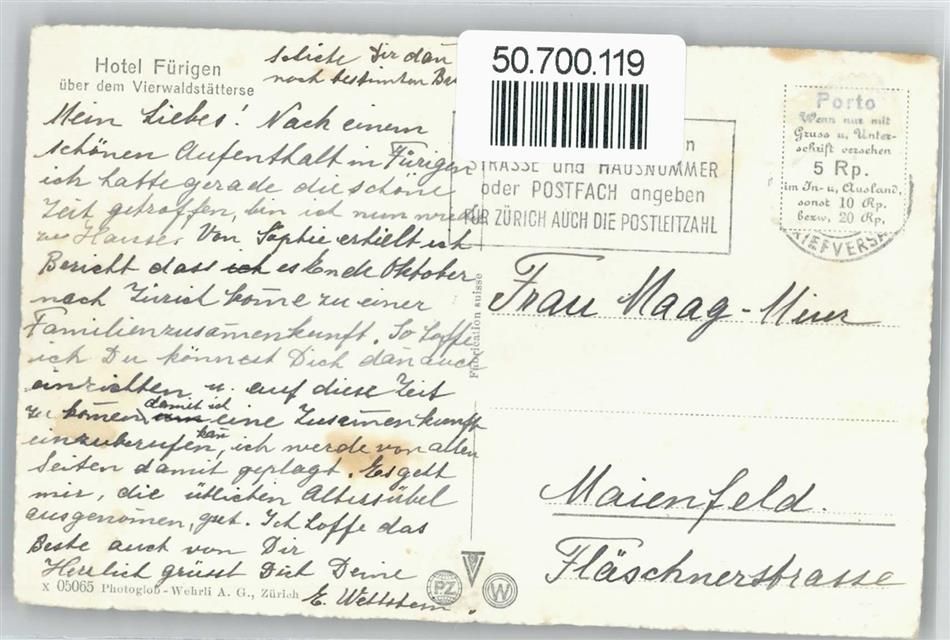 Hotel Fürigen
über dem Vierwaldstätterse
schicke Dir dan
noch bestimten Be
50.700.119
Mein Liebes! Nach einem
schönen Aufenthalt in Fürigen
ich hatte gerade die schöne
Zeit getroffen, bin ich nun wieder
zu Hause. Von Sophie erhielt ich
Bericht dass ich es Ende Oktober
nach Zürich kome zu einer
Familienzusamenkunft. So hoffe
ich Du könnest Dich dan auch
einrichten u. auf diese Zeit
zu komen, damit ich eine Zusamenkunft
einzuberufen kan, ich werde von allen
Seiten damit geplagt. Es geht
mir, die üblichen Altersübel
ausgenomen, gut. Ich hoffe das
Beste auch von Dir
Herzlich grüsst Dich Deine
E. Wettstein
x 05065 Photoglob-Wehrli A. G., Zürich
Fabrication suisse
PZ
W
n
STRASSE und HAUSNUMMER
oder POSTFACH angeben
FÜR ZÜRICH AUCH DIE POSTLEITZAHL
Porto
Wenn nur mit
Gruss u. Unter-
schrift versehen
5 Rp.
im In- u. Ausland,
sonst 10 Rp.
bezw. 20 Rp.
RIEFVERSA
Frau Maag-Meier
Maienfeld.
Fläschnerstrasse